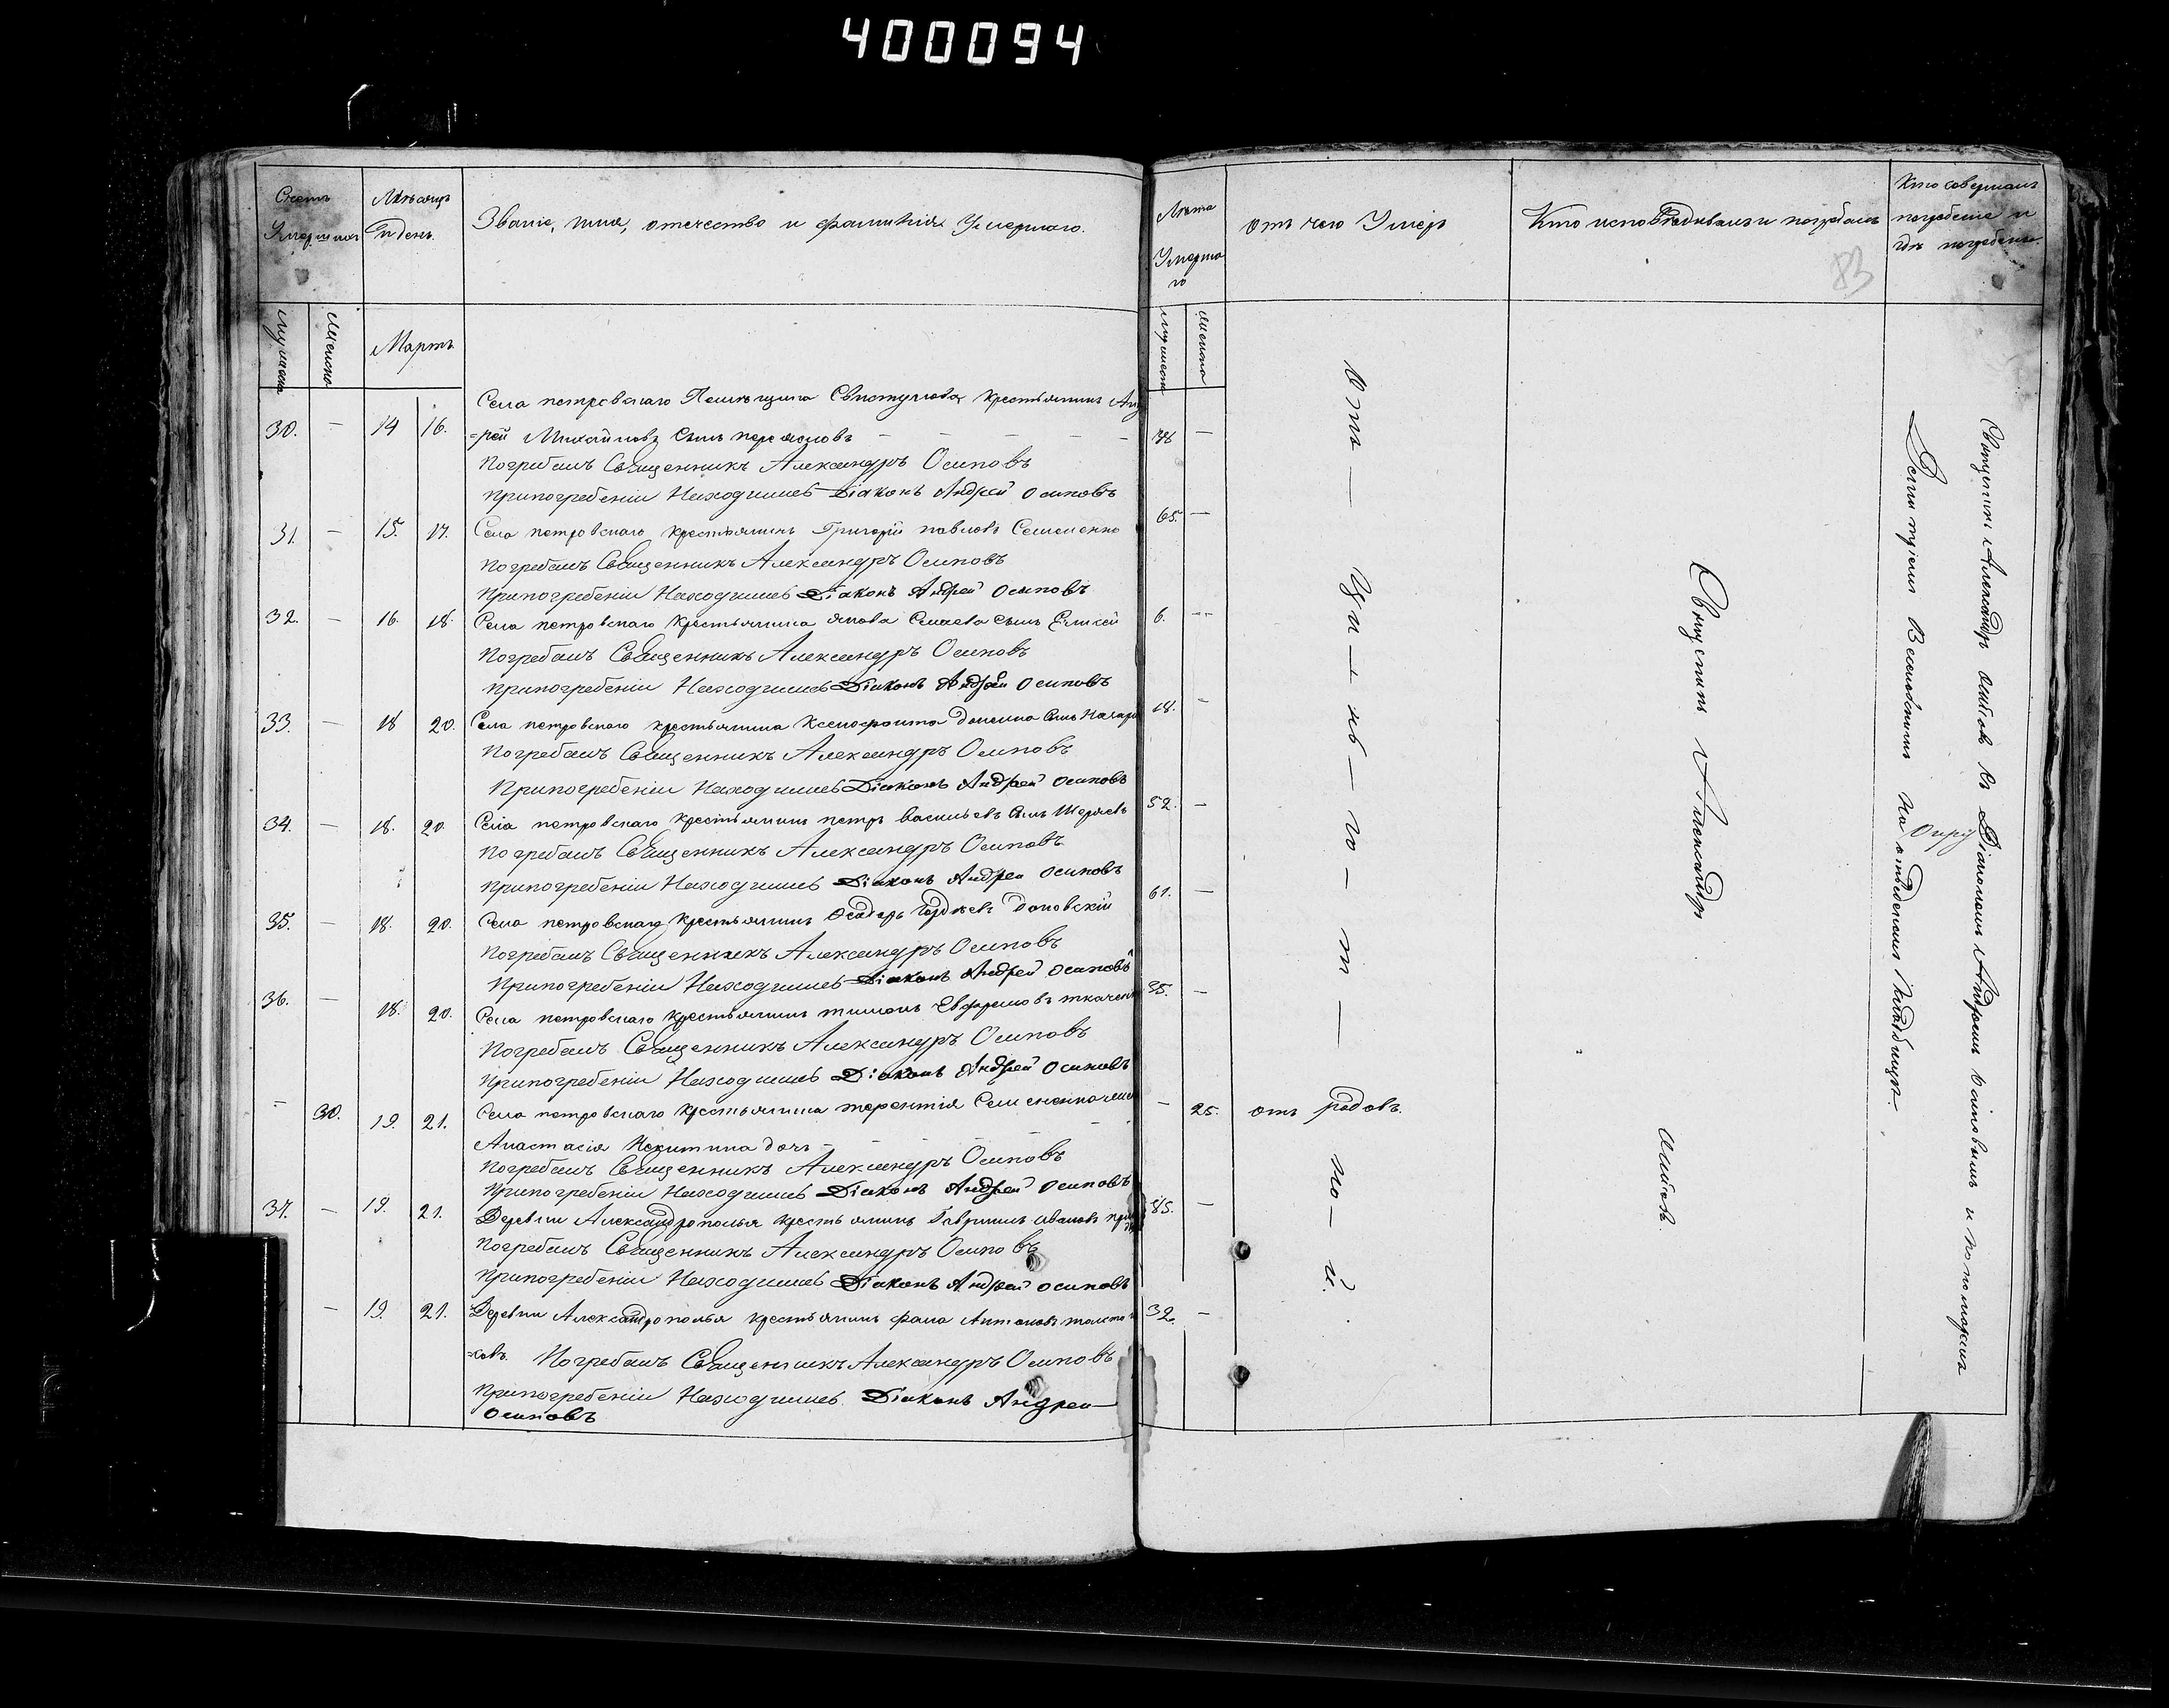 400094
Счетъ Умершихъ
Мѣсяцъ и день.
Званіе, имя, отечество и фамилія Умершаго.
Лѣта Умершаго
отъ чего Умеръ
Кто исповѣдывалъ и погребалъ
Кто совершалъ погребеніе и гдѣ погребены.
83
мужеска
женска
Мартъ
мужеска
женска
Села петровскаго Помѣщика Свистунова крестьянинъ Анд
30. — 14 16. =рей Михайловъ сынъ — — — — 38 —
Погребалъ Священникъ Александръ Осиповъ
припогребеніи Находились Діаконъ Андрей осиповъ
31. — 15. 17. Села петровскаго крестьянинъ Григорій павловъ Семененко 65. —
погребалъ Священникъ Александръ Осиповъ
припогребеніи Находились Діаконъ Андрей осиповъ
32. — 16. 18. Села петровскаго крестьянина сынъ Елисей 6. —
Погребалъ Священникъ Александръ Осиповъ
припогребеніи Находились Діаконъ Андрей осиповъ
33. — 18 20. Села петровскаго крестьянина Ксенофонта сынъ 18. —
Погребалъ Священникъ Александръ Осиповъ
Припогребеніи Находились Діаконъ Андрей осиповъ
34. — 18. 20. Села петровскаго крестьянинъ петръ васильевъ сынъ 52. —
погребалъ Священникъ Александръ Осиповъ
припогребеніи Находились Діаконъ Андрей осиповъ
35. — 18. 20. Села петровскаго крестьянинъ 61. —
погребалъ Священникъ Александръ Осиповъ
припогребеніи Находились Діаконъ Андрей осиповъ
36. — 18. 20. Села петровскаго крестьянинъ Евфремовъ 35. —
Погребалъ Священникъ Александръ Осиповъ
припогребеніи Находились Діаконъ Андрей осиповъ
— 30. 19. 21. Села петровскаго крестьянина терентія Семененка — 25. отъ родовъ.
Анастасія Никитина дочь — — — —
погребалъ Священникъ Александръ Осиповъ
припогребеніи Находились Діаконъ Андрей осиповъ
37. — 19. 21. Деревни Александрополья крестьянинъ Гавріилъ ивановъ 85. —
погребалъ Священникъ Александръ Осиповъ
припогребеніи Находились Діаконъ Андрей осиповъ
— 19. 21. Деревни Александрополья крестьянинъ фома Антоновъ 32. —
=ковъ. Погребалъ Священникъ Александръ Осиповъ
припогребеніи Находились Діаконъ Андрей
осиповъ
Отъ — Цы — н — го — т — но — й.
Священникъ Александръ осиповъ.
Священникъ Александръ осиповъ съ Діакономъ Андреемъ осиповымъ и пономаремъ
на отведенномъ кладбищѣ.